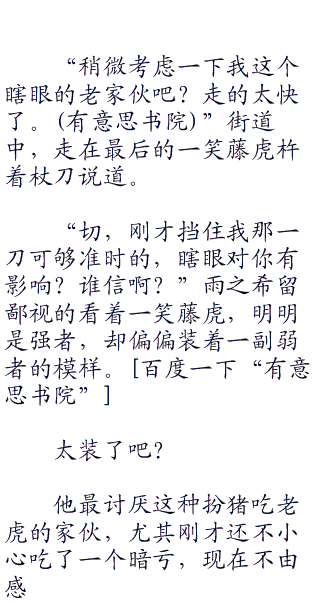 “稍微考虑一下我这个
瞎眼的老家伙吧？走的太快
了。(有意思书院)”街道
中，走在最后的一笑藤虎杵
着杖刀说道。
“切，刚才挡住我那一
刀可够准时的，瞎眼对你有
影响？谁信啊？”雨之希留
鄙视的看着一笑藤虎，明明
是强者，却偏偏装着一副弱
者的模样。[百度一下“有意
思书院”]
太装了吧？
他最讨厌这种扮猪吃老
虎的家伙，尤其刚才还不小
心吃了一个暗亏，现在不由
感